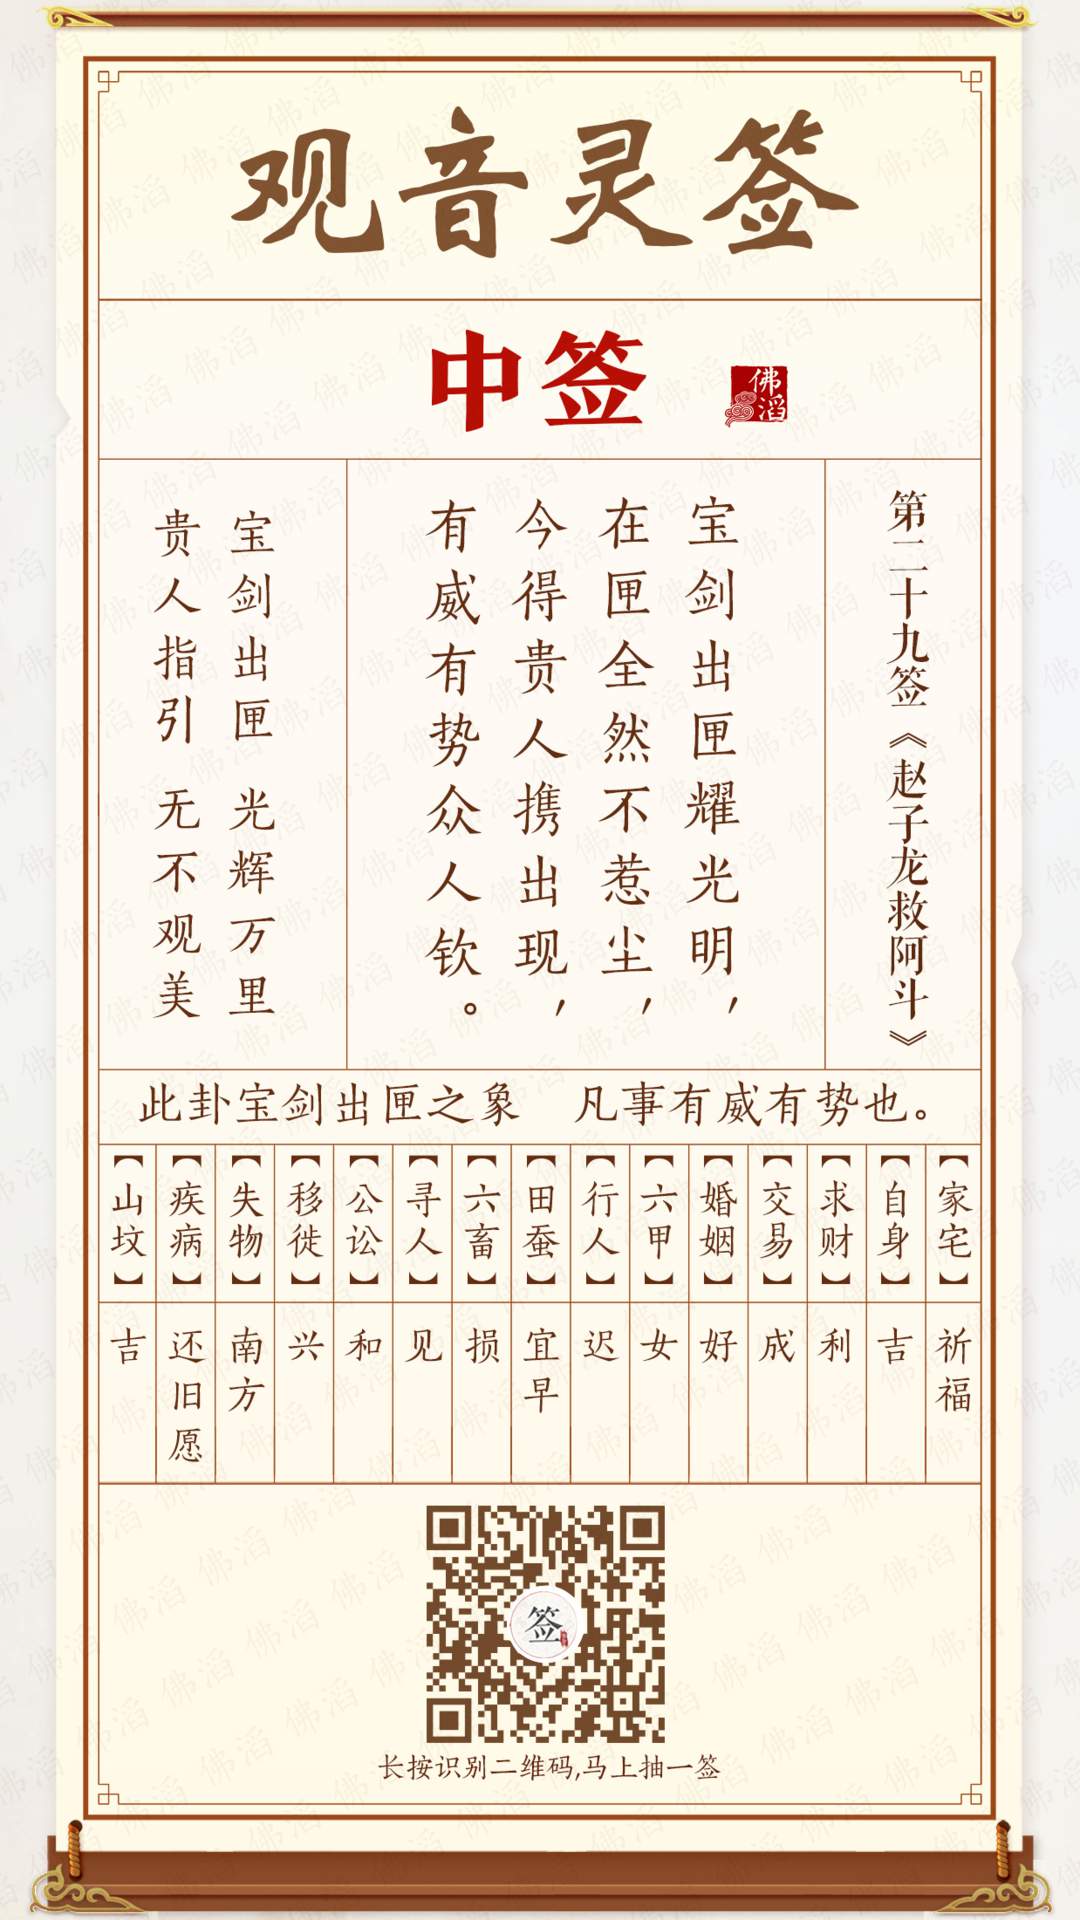 观音灵签
中签
佛滔
第二十九签《赵子龙救阿斗》
宝剑出匣耀光明，
在匣全然不惹尘，
今得贵人携出现，
有威有势众人钦。
宝剑出匣 光辉万里
贵人指引 无不观美
此卦宝剑出匣之象 凡事有威有势也。
【家宅】祈福
【自身】吉
【求财】利
【交易】成
【婚姻】好
【六甲】女
【行人】迟
【田蚕】宜早
【六畜】损
【寻人】见
【公讼】和
【移徙】兴
【失物】南方
【疾病】还旧愿
【山坟】吉
签
长按识别二维码,马上抽一签